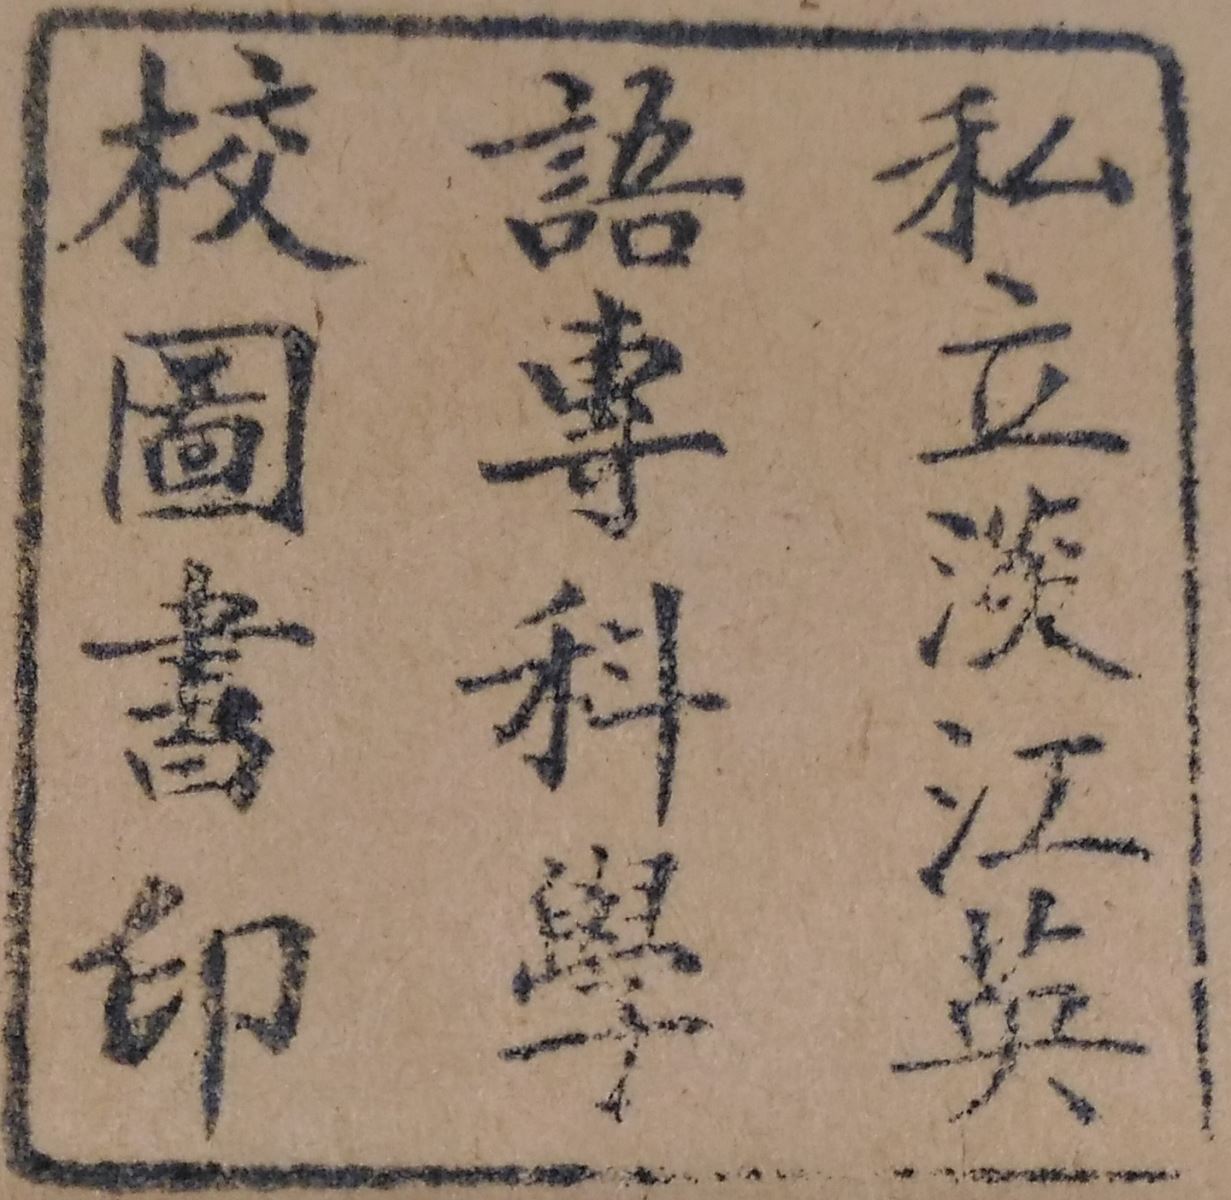 私立淡江英
語專科學
校圖書印